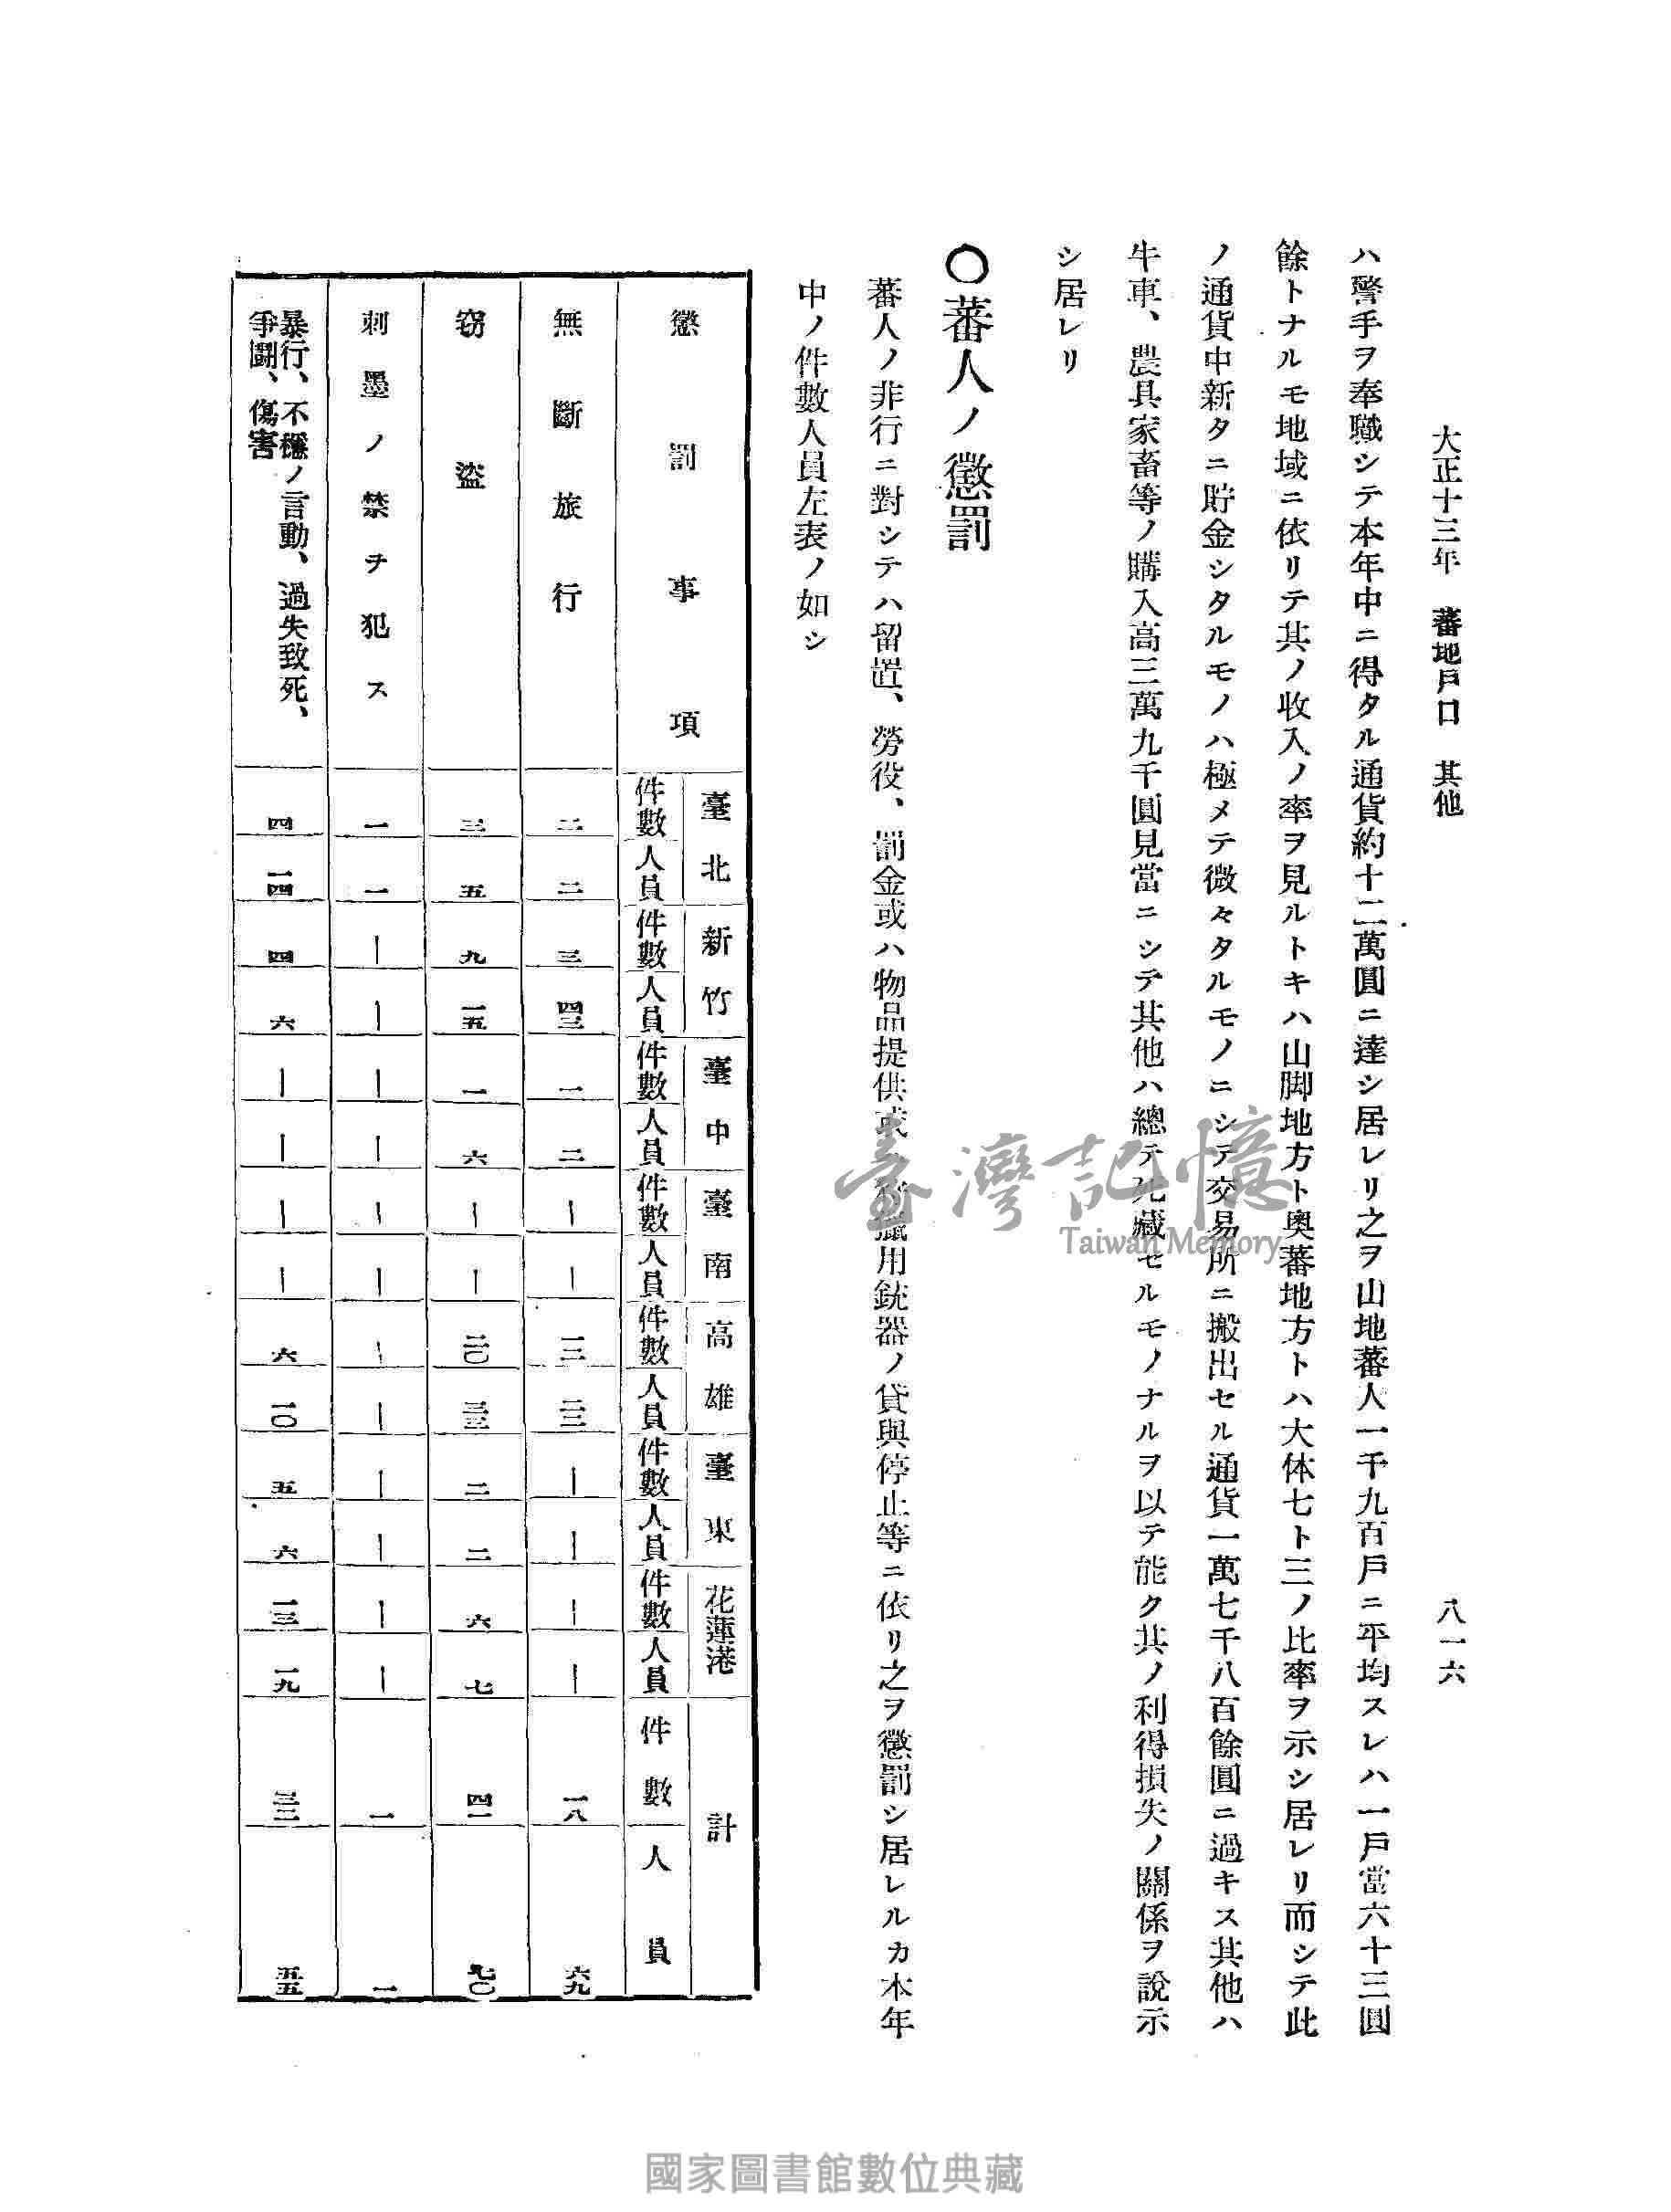 大正十三年　蕃地戶口　其他
八一六
ハ警手ヲ奉職シテ本年中ニ得タル通貨約十二萬圓ニ達シ居レリ之ヲ山地蕃人一千九百戶ニ平均スレハ一戶當六十三圓
餘トナルモ地域ニ依リテ其ノ收入ノ率ヲ見ルトキハ山脚地方ト奧蕃地方トハ大体七ト三ノ比率ヲ示シ居レリ而シテ此
ノ通貨中新タニ貯金シタルモノハ極メテ微々タルモノニシテ交易所ニ搬出セル通貨一萬七千八百餘圓ニ過キス其他ハ
牛車、農具家畜等ノ購入高三萬九千圓見當ニシテ其他ハ總テ死藏セルモノナルヲ以テ能ク其ノ利得損失ノ關係ヲ說示
シ居レリ
〇蕃人ノ懲罰
蕃人ノ非行ニ對シテハ留置、勞役、罰金或ハ物品提供或ハ狩獵用銃器ノ貸與停止等ニ依リ之ヲ懲罰シ居レルカ本年
中ノ件數人員左表ノ如シ
懲罰事項　臺北　新竹　臺中　臺南　高雄　臺東　花蓮港　計
件數　人員　件數　人員　件數　人員　件數　人員　件數　人員　件數　人員　件數　人員　件數　人員
無斷旅行　二　二　三　四三　一　二　—　—　一二　二二　—　—　—　—　一八　六九
窃盜　三　五　九　一五　一　六　—　—　二〇　三五　二　二　六　七　四一　七〇
刺墨ノ禁ヲ犯ス　一　一　—　—　—　—　—　—　—　—　—　—　—　—　一　一
暴行、不穩ノ言動、過失致死、
爭鬪、傷害　四　一四　四　六　—　—　—　—　六　一〇　五　六　一三　一九　三二　五五
臺灣記憶
Taiwan Memory
國家圖書館數位典藏